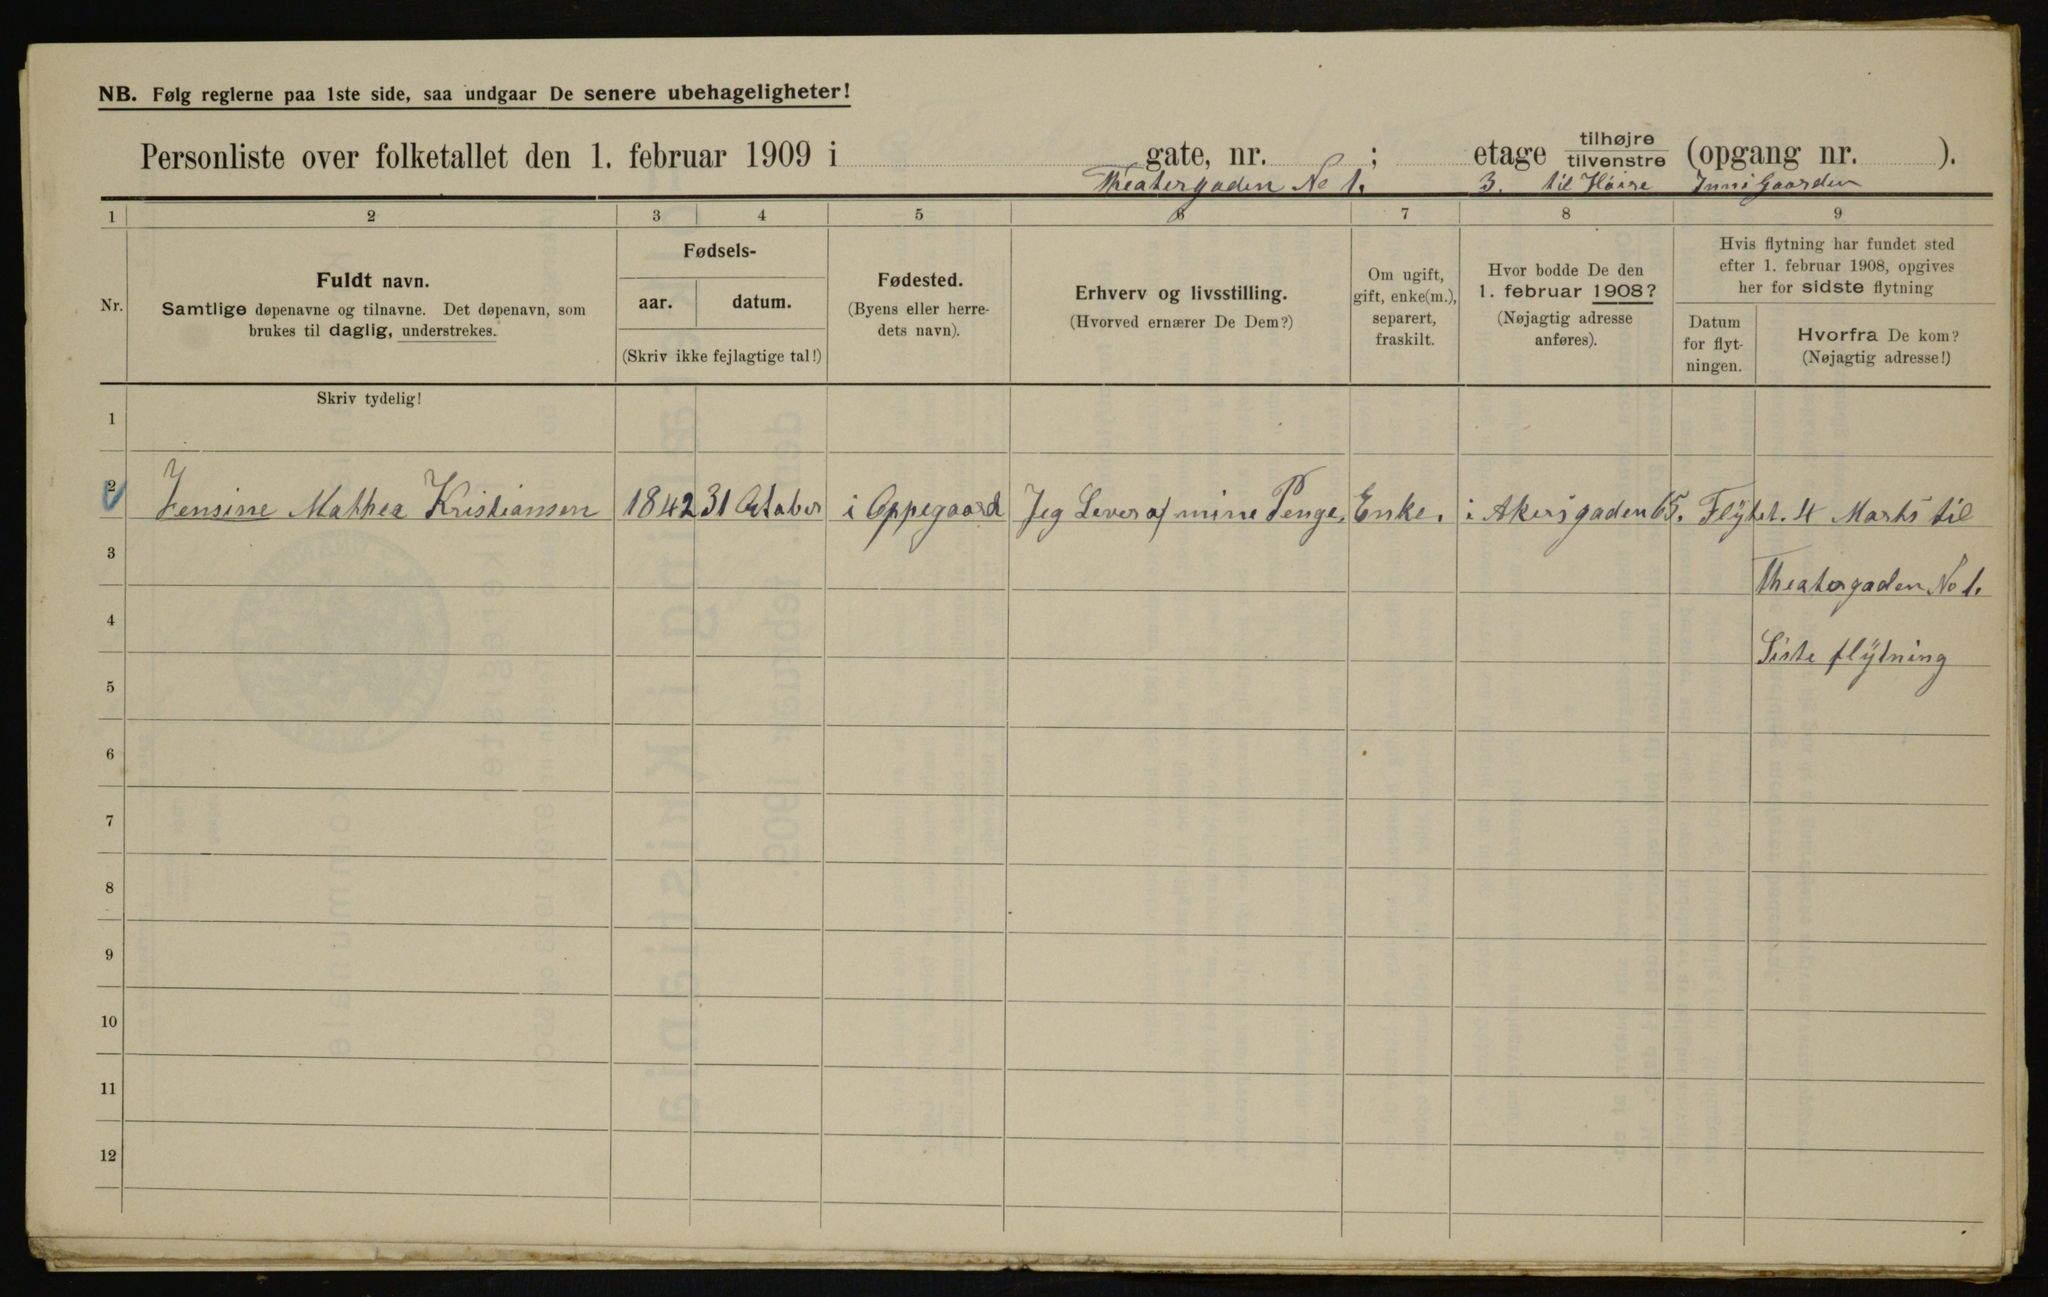 NB. Følg reglerne paa 1ste side, saa undgaar De senere ubehageligheter!
Personliste over folketallet den 1. februar 1909 i gate, nr. ; etage tilhøjre/tilvenstre (opgang nr. ).
Theatergaden No 1. 3. til Høire Inni Gaarden
1 2 3 4 5 6 7 8 9
Nr.
Fuldt navn.
Samtlige døpenavne og tilnavne. Det døpenavn, som
brukes til daglig, understrekes.
Fødsels-
aar. datum.
(Skriv ikke fejlagtige tal!)
Fødested.
(Byens eller herre-
dets navn).
Erhverv og livsstilling.
(Hvorved ernærer De Dem?)
Om ugift,
gift, enke(m.),
separert,
fraskilt.
Hvor bodde De den
1. februar 1908?
(Nøjagtig adresse
anføres).
Hvis flytning har fundet sted
efter 1. februar 1908, opgives
her for sidste flytning
Datum
for flyt-
ningen.
Hvorfra De kom?
(Nøjagtig adresse!)
Skriv tydelig!
1
2 Jensine Mathea Kristiansen 1842 31 Octaber i Oppegaard Jeg Lever af mine Penge, Enke. i Akersgaden 65. Flÿtet. 4 Marts til
3 Theatergaden No 1.
4 Siste flÿtning
5
6
7
8
9
10
11
12